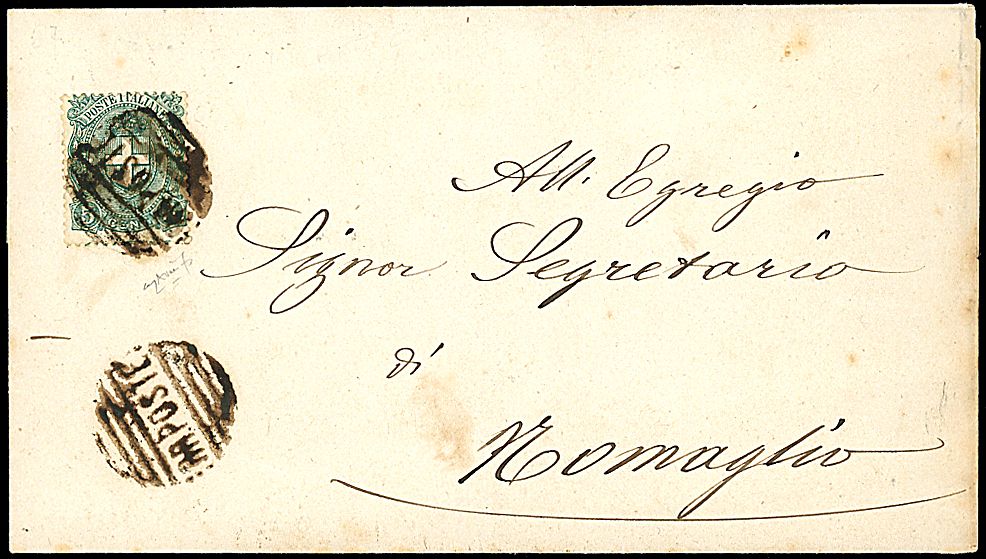 POSTE ITALIANE
5 CEN
All. Egregio
Signor Segretario
di
Nomaglio
POSTE